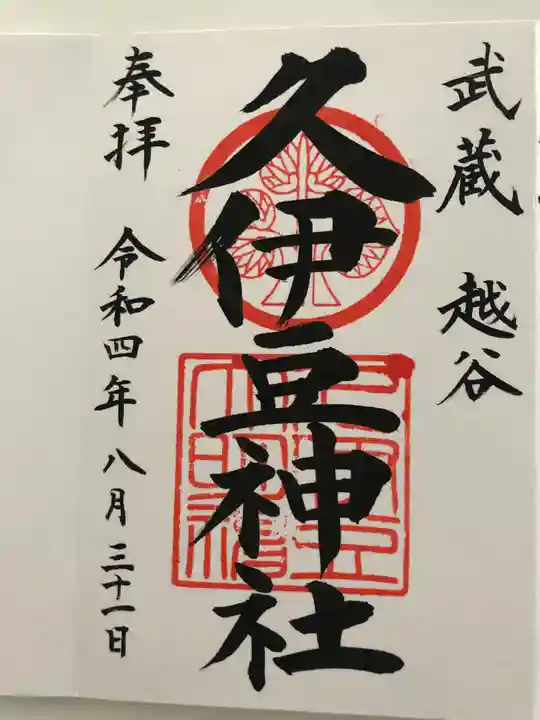 武蔵 越谷
久伊豆神社
奉拝 令和四年 八月三十一日